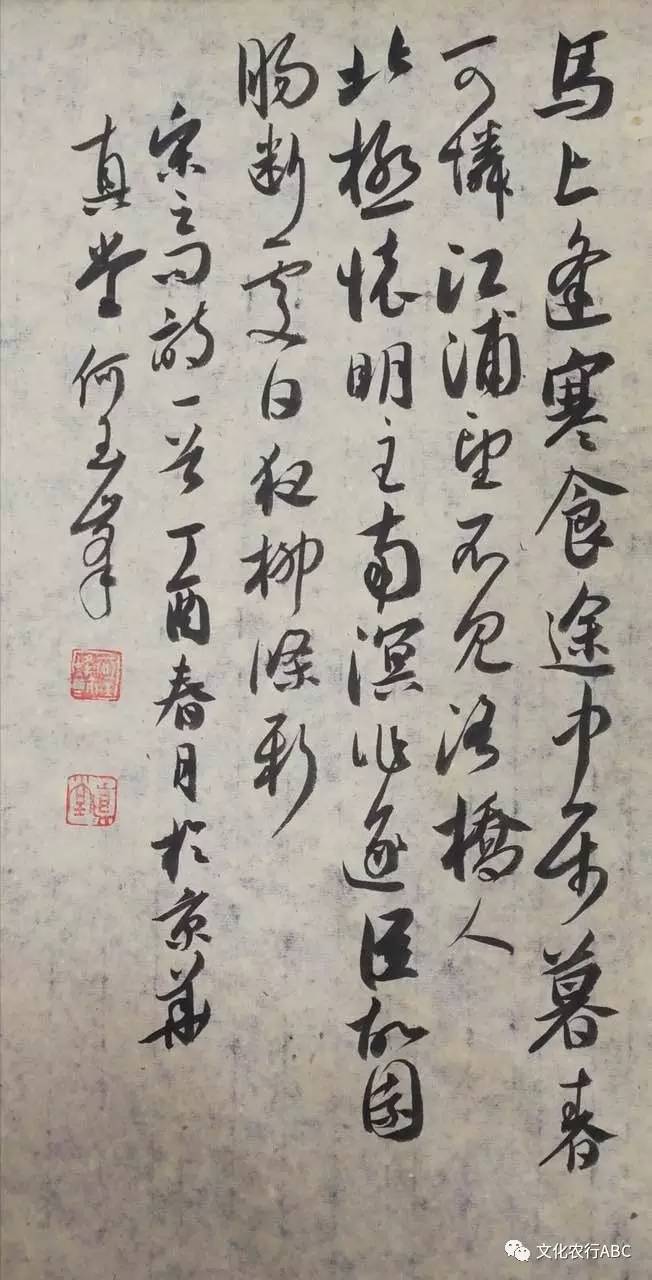 馬上逢寒食途中属暮春
可憐江浦望不見洛橋人
北極懷明主南溟作逐臣故園
腸斷處日夜柳條新
宋之问詩一首丁酉春月於京華
真堂何玉峯
文化农行ABC